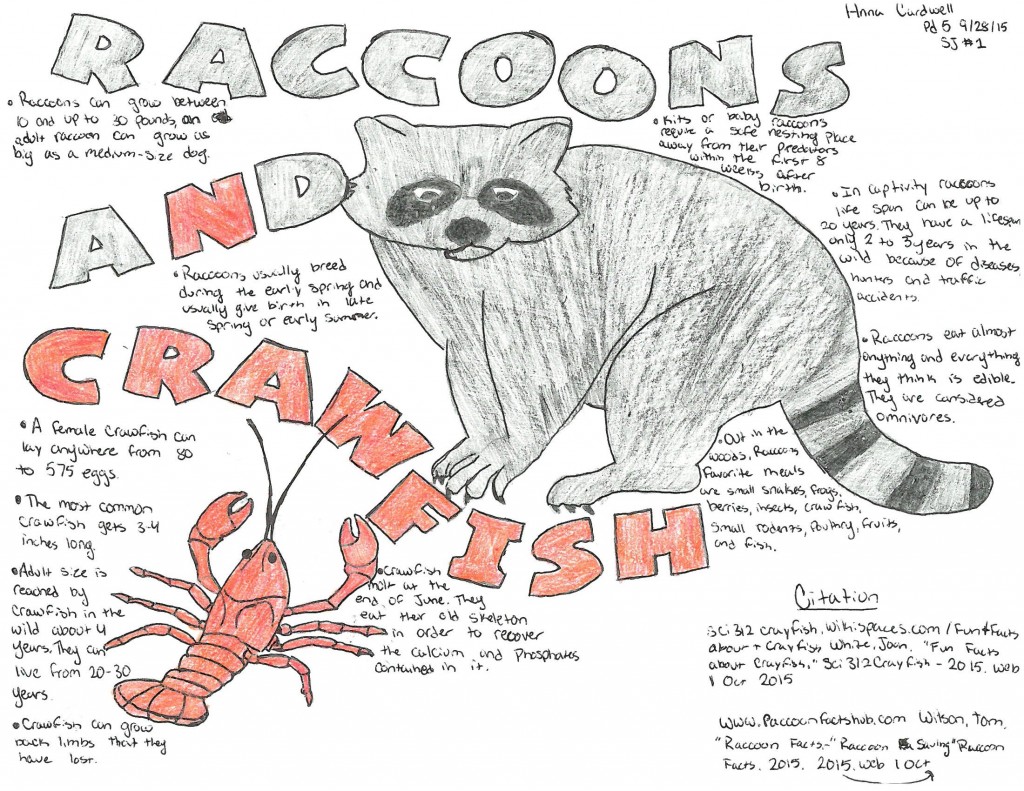 Anna Cardwell
Pd 5 9/28/15
SJ #1
RACCOONS
AND
CRAWFISH
• Raccoons can grow between
10 and up to 30 pounds, an
adult raccoon can grow as
big as a medium-size dog.
• Kits or baby raccoons
require a safe nesting place
away from their predators
within the first 8
weeks after
birth.
• In captivity raccoons
life span can be up to
20 years. They have a lifespan
only 2 to 3 years in the
wild because of diseases,
hunters and traffic
accidents.
• Raccoons usually breed
during the early spring and
usually give birth in late
spring or early summer.
• Raccoons eat almost
anything and everything
they think is edible.
They are considered
omnivores.
• Out in the
woods, Raccoons
Favorite meals
are small snakes, frogs,
berries, insects, crawfish,
small rodents, poultry, fruits,
and fish.
• A female Crawfish can
lay anywhere from 80
to 575 eggs.
• The most common
Crawfish gets 3-4
inches long.
• Adult size is
reached by
Crawfish in the
wild about 4
years. They can
live from 20-30
years.
• Crawfish can grow
back limbs that they
have lost.
• Crawfish
molt at the
end of June. They
eat their old skeleton
in order to recover
the calcium and Phosphates
contained in it.
Citation
Sci312 crayfish.wikispaces.com/Fun+Facts
about + Crayfish White, Joan. "Fun Facts
about Crayfish," Sci312Crayfish - 2015. Web
1 Oct 2015
www.Raccoonfactshub.com Wilson, Tom.
"Raccoon Facts-" Raccoon Saving "Raccoon
Facts. 2015. 2015. web 1 Oct